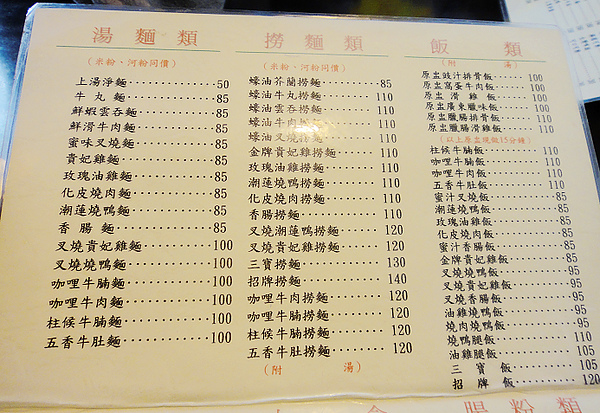 湯麵類
（米粉、河粉同價）
上湯淨麵 50
牛丸麵 85
鮮蝦雲吞麵 85
鮮滑牛肉麵 85
蜜味叉燒麵 85
貴妃雞麵 85
玫瑰油雞麵 85
化皮燒肉麵 85
潮蓮燒鴨麵 85
香腸麵 85
叉燒貴妃雞麵 100
叉燒燒鴨麵 100
咖哩牛腩麵 100
咖哩牛肉麵 100
柱候牛腩麵 100
五香牛肚麵 100
撈麵類
（米粉、河粉同價）
蠔油芥蘭撈麵 85
蠔油牛丸撈麵 110
蠔油雲吞撈麵 110
蠔油牛肉撈麵 110
蠔油叉燒撈麵 110
金牌貴妃雞撈麵 110
玫瑰油雞撈麵 110
潮蓮燒鴨撈麵 110
化皮燒肉撈麵 110
香腸撈麵 110
叉燒潮蓮燒鴨撈麵 120
叉燒貴妃雞撈麵 120
三寶撈麵 130
招牌撈麵 140
咖哩牛肉撈麵 120
咖哩牛腩撈麵 120
柱候牛腩撈麵 120
五香牛肚撈麵 120
（附湯）
飯類
（附湯）
原盅豉汁排骨飯 100
原盅窩蛋牛肉飯 100
原盅滑雞飯 100
原盅廣東臘味飯 110
原盅臘腸排骨飯 110
原盅臘腸滑雞飯 110
（以上原盅現做15分鐘）
柱候牛腩飯 100
咖哩牛腩飯 100
咖哩牛肉飯 100
五香牛肚飯 100
蜜汁叉燒飯 85
潮蓮燒鴨飯 85
玫瑰油雞飯 85
化皮燒肉飯 85
蜜汁香腸飯 85
金牌貴妃雞飯 85
叉燒燒鴨飯 95
叉燒貴妃雞飯 95
叉燒香腸飯 95
油雞燒鴨飯 95
燒肉燒鴨飯 95
燒鴨腿飯 110
油雞腿飯 105
三寶飯 105
招牌飯 120
腸粉類